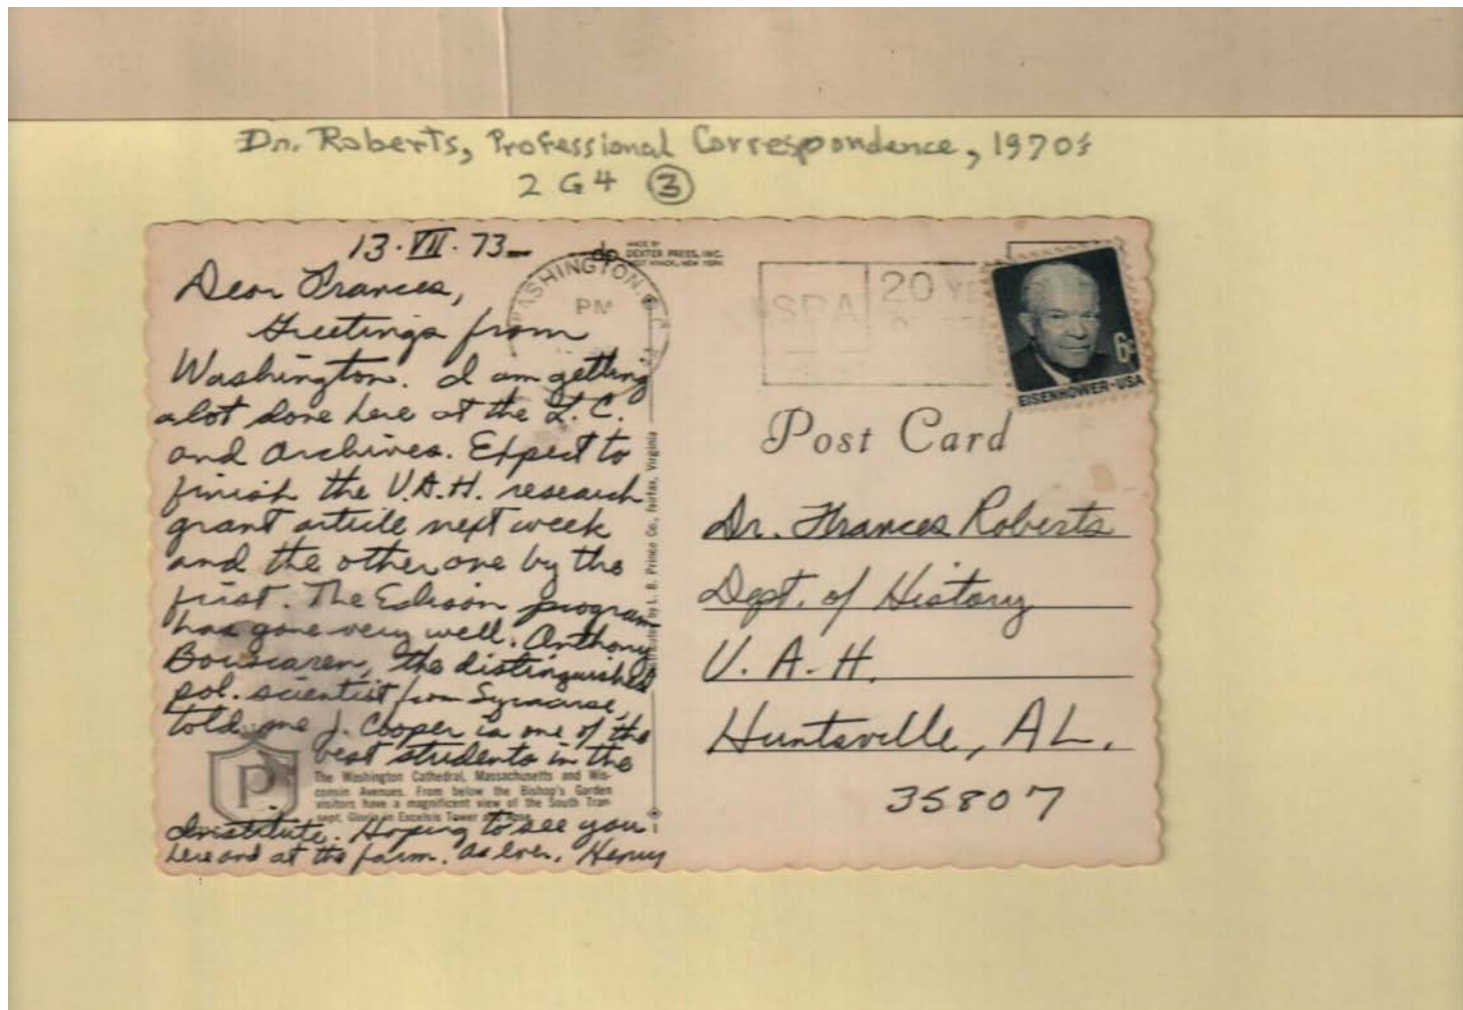 Dr. Roberts, Professional Correspondence, 1970's
2 G4 ③
13·VII·73
Dear Frances,
Greetings from
Washington. I am getting
a lot done here at the L.C.
and archives. Expect to
finish the U.A.H. research
grant article next week
and the other one by the
first. The Edison program
has gone very well. Anthony
Bouscaren, the distinguished
pol. scientist from Syracuse,
told me J. Cooper is one of the
best students in the
Institute. Hoping to see you
here and at the farm. As ever, Henry
The Washington Cathedral, Massachusetts and Wis-
consin Avenues. From below the Bishop's Garden
visitors have a magnificent view of the South Tran-
sept, Gloria in Excelsis Tower and
P
dp
MADE BY
DEXTER PRESS, INC.
WEST NYACK, NEW YORK
by L. B. Prince Co., Fairfax, Virginia
WASHINGTON, D.C.
PM
SBA
20 YE
6¢
EISENHOWER-USA
Post Card
Dr. Frances Roberts
Dept. of History
U.A.H.
Huntsville, AL.
35807